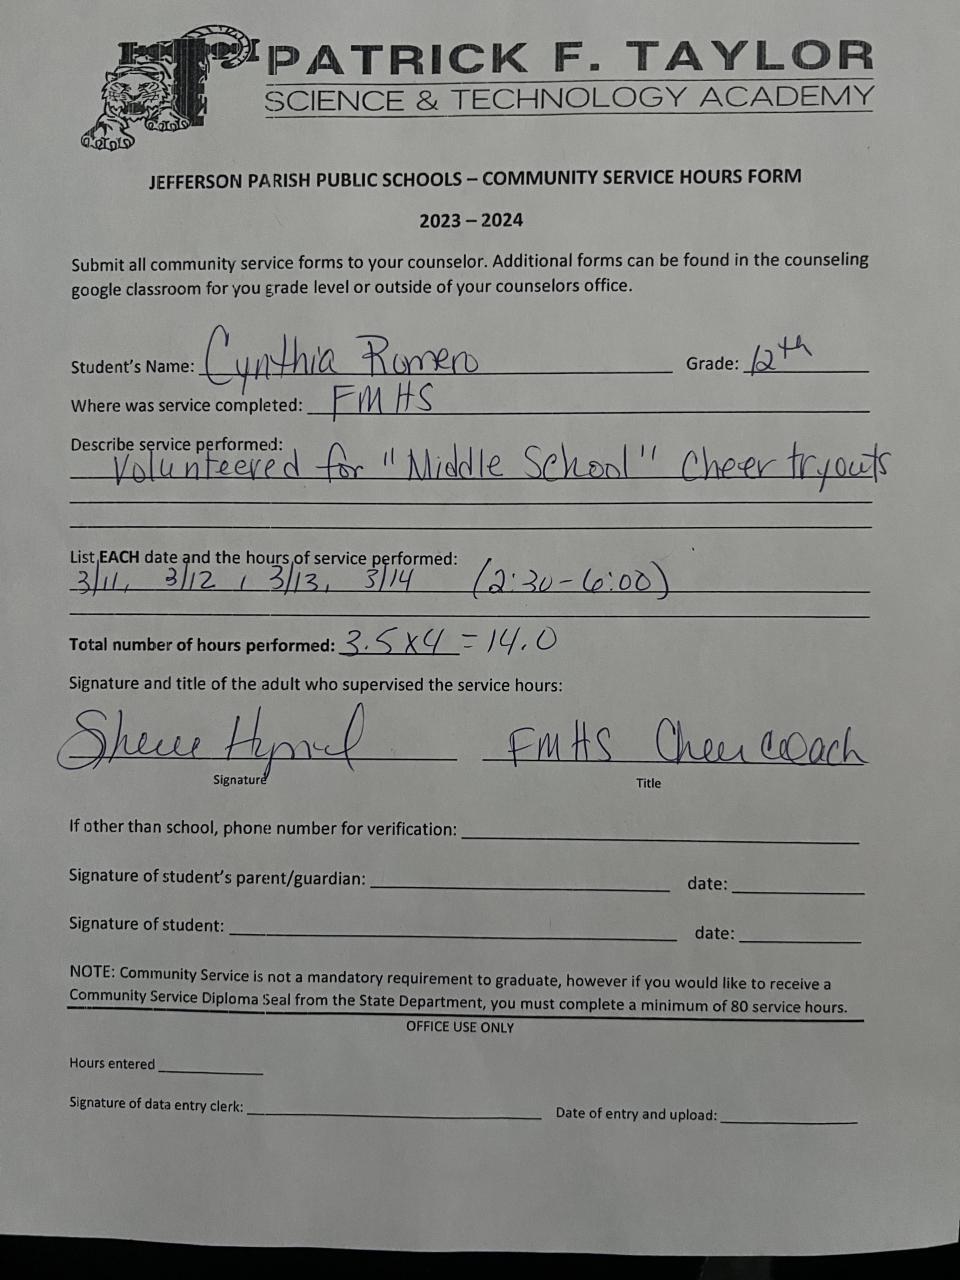 PATRICK F. TAYLOR
SCIENCE & TECHNOLOGY ACADEMY
JEFFERSON PARISH PUBLIC SCHOOLS – COMMUNITY SERVICE HOURS FORM
2023 – 2024
Submit all community service forms to your counselor. Additional forms can be found in the counseling
google classroom for you grade level or outside of your counselors office.
Student's Name: Cynthia Romero Grade: 12th
Where was service completed: FMHS
Describe service performed:
Volunteered for "Middle School" Cheer tryouts
List EACH date and the hours of service performed:
3/11, 3/12, 3/13, 3/14 (2:30-6:00)
Total number of hours performed: 3.5x4 = 14.0
Signature and title of the adult who supervised the service hours:
FMHS Cheer coach
Signature Title
If other than school, phone number for verification:
Signature of student's parent/guardian: date:
Signature of student: date:
NOTE: Community Service is not a mandatory requirement to graduate, however if you would like to receive a
Community Service Diploma Seal from the State Department, you must complete a minimum of 80 service hours.
OFFICE USE ONLY
Hours entered
Signature of data entry clerk: Date of entry and upload: